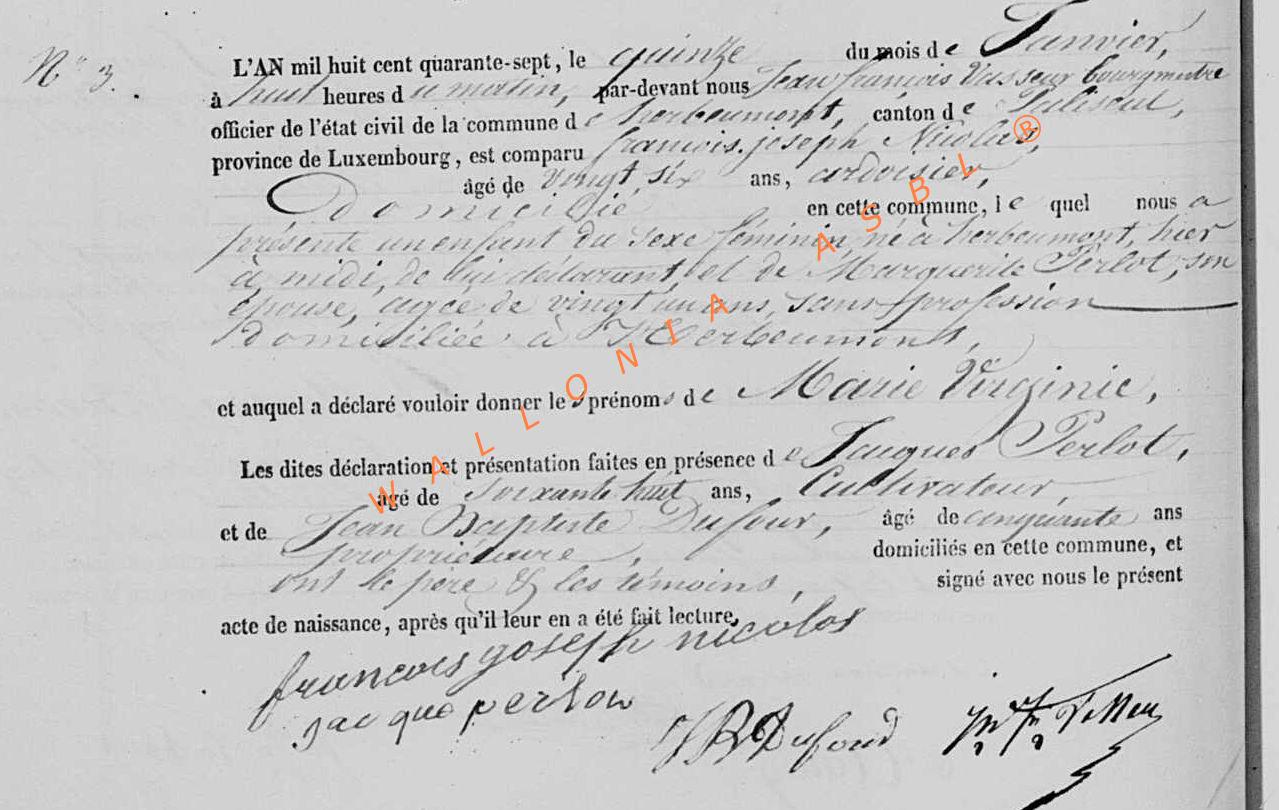 N° 3.
L'AN mil huit cent quarante-sept, le quinze du mois de Janvier,
à huit heures du matin, par-devant nous Jean françois Vasseur bourgmestre
officier de l'état civil de la commune de herbeumont, canton de Paliseul,
province de Luxembourg, est comparu françois joseph Nicolas,
âgé de vingt six ans, ardoisier,
Domicilié en cette commune, le quel nous a
présenté un enfant du sexe féminin, né à herbeumont, hier
à midi, de lui déclarant, et de Marguerite Perlot, son
épouse, agée de vingt un ans, sans profession
domiciliée à Herbeumont,
et auquel a déclaré vouloir donner les prénoms de Marie Virginie,
Les dites déclaration et présentation faites en présence de Jacques Perlot,
âgé de soixante huit ans, Cultivateur,
et de Jean Baptiste Dufour, âgé de cinquante ans
propriétaire, domiciliés en cette commune, et
ont le père & les témoins, signé avec nous le présent
acte de naissance, après qu'il leur en a été fait lecture,
francois joseph nicolas
jacque perlow
JB Dufour
WALLONIA ASBL ®